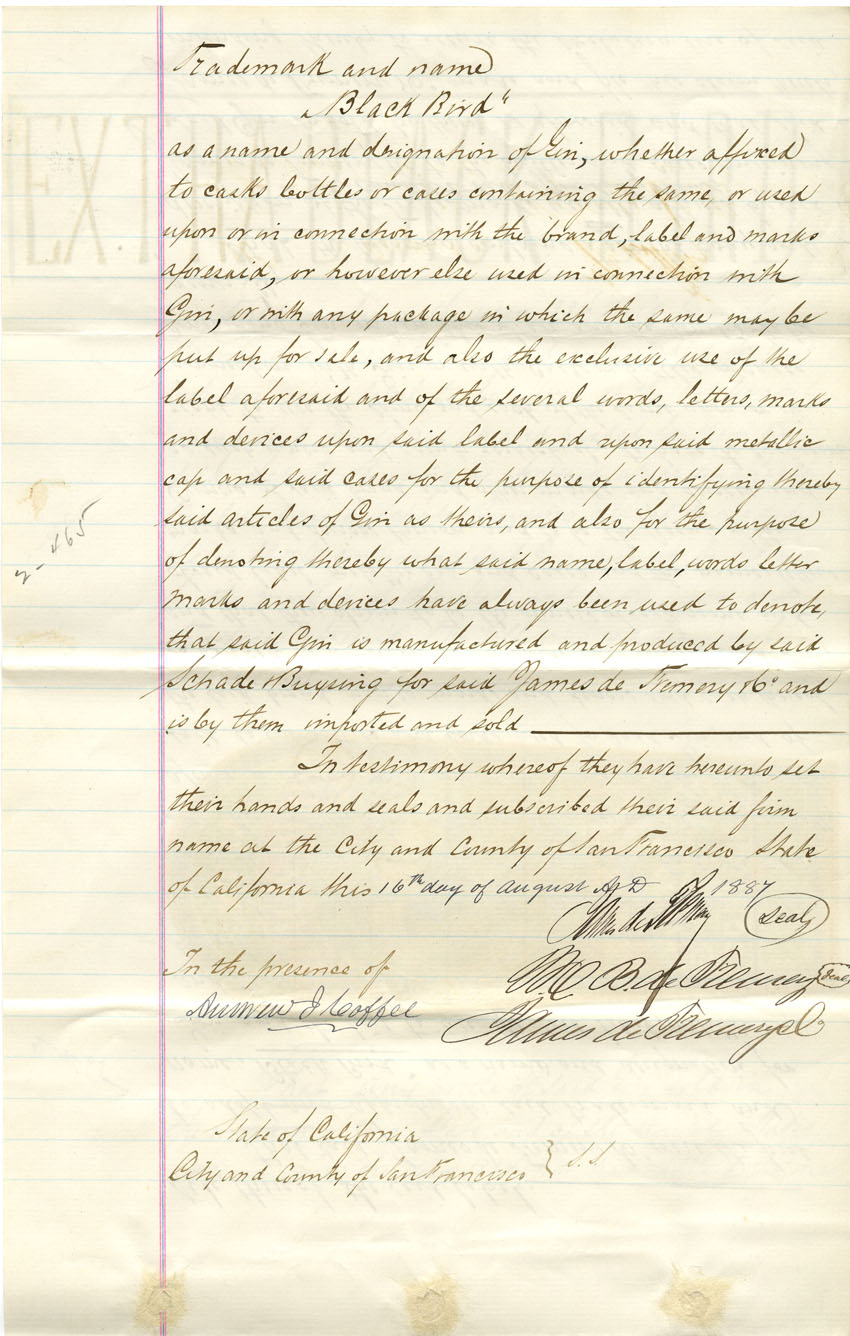 Trademark and name
"Black Bird"
as a name and designation of Gin, whether affixed
to casks bottles or cases containing the same, or used
upon or in connection with the brand, label and marks
aforesaid, or however else used in connection with
Gin, or with any package in which the same may be
put up for sale, and also the exclusive use of the
label aforesaid and of the several words, letters, marks
and devices upon said label and upon said metallic
cap and said cases for the purpose of identifying thereby
said articles of Gin as theirs, and also for the purpose
of denoting thereby what said name, label, words letter
marks and devices have always been used to denote,
that said Gin is manufactured and produced by said
Schade & Buysing for said James de Fremery & Co and
is by them imported and sold
In testimony whereof they have hereunto set
their hands and seals and subscribed their said firm
name at the City and County of San Francisco State
of California this 16th day of August A.D. 1887
2-465
James de Fremery (Seal)
In the presence of
B. de Fremery (Seal)
Andrew J Coffee
James de Fremery & Co
State of California
City and County of San Francisco } S.S